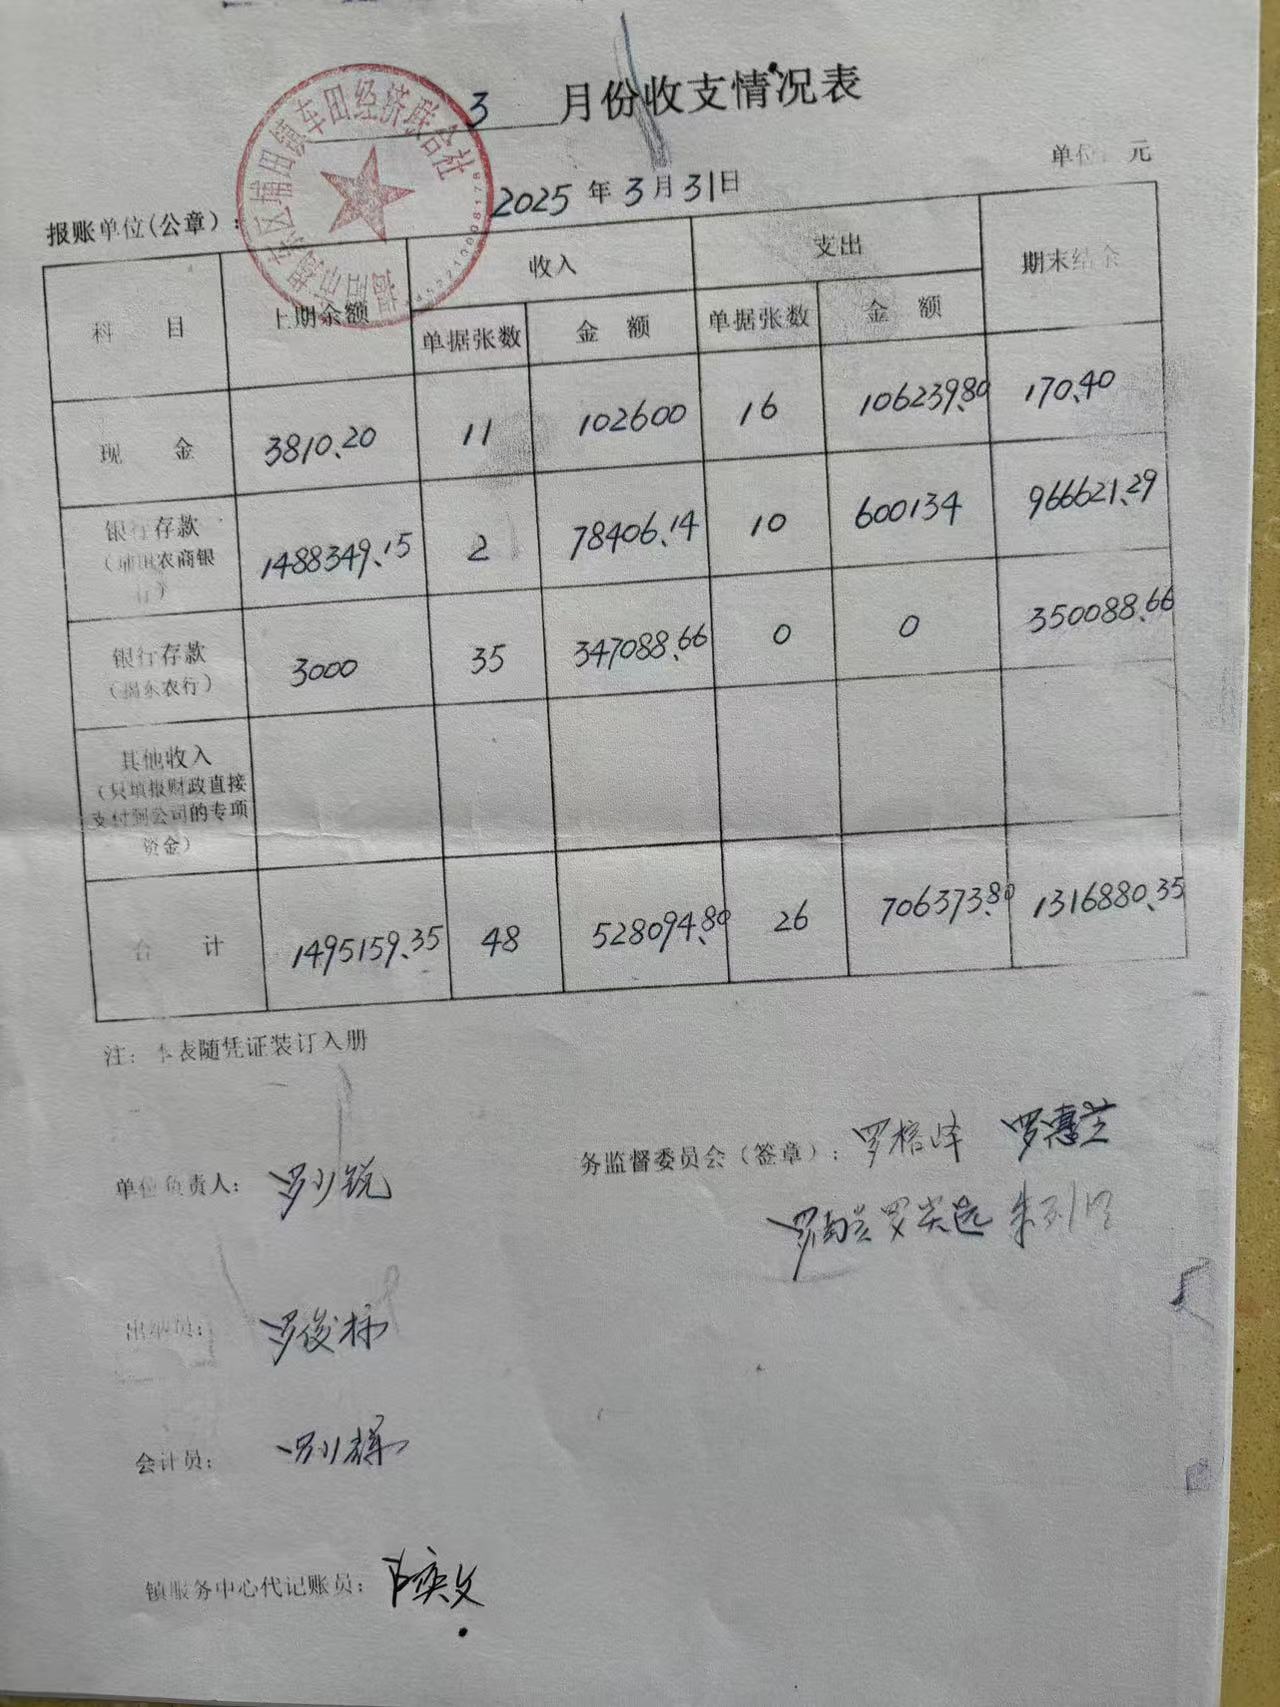 3 月份收支情况表
单位：元
揭阳市揭东区埔田镇车田经济联合社
2025年3月31日
报账单位(公章)：
科 目 上期余额 收入 支出 期末结余
单据张数 金 额 单据张数 金 额
现 金 3810.20 11 102600 16 106239.80 170.40
银行存款（埔田农商银行） 1488349.15 2 78406.14 10 600134 966621.29
银行存款（揭东农行） 3000 35 347088.66 0 0 350088.66
其他收入
（只填报财政直接
支付到公司的专项
资金）
合 计 1495159.35 48 528094.80 26 706373.80 1316880.35
注：本表随凭证装订入册
单位负责人：罗少锐
务监督委员会（签章）：罗榕峰 罗惠兰
出纳员：罗俊标
会计员：
镇服务中心代记账员：